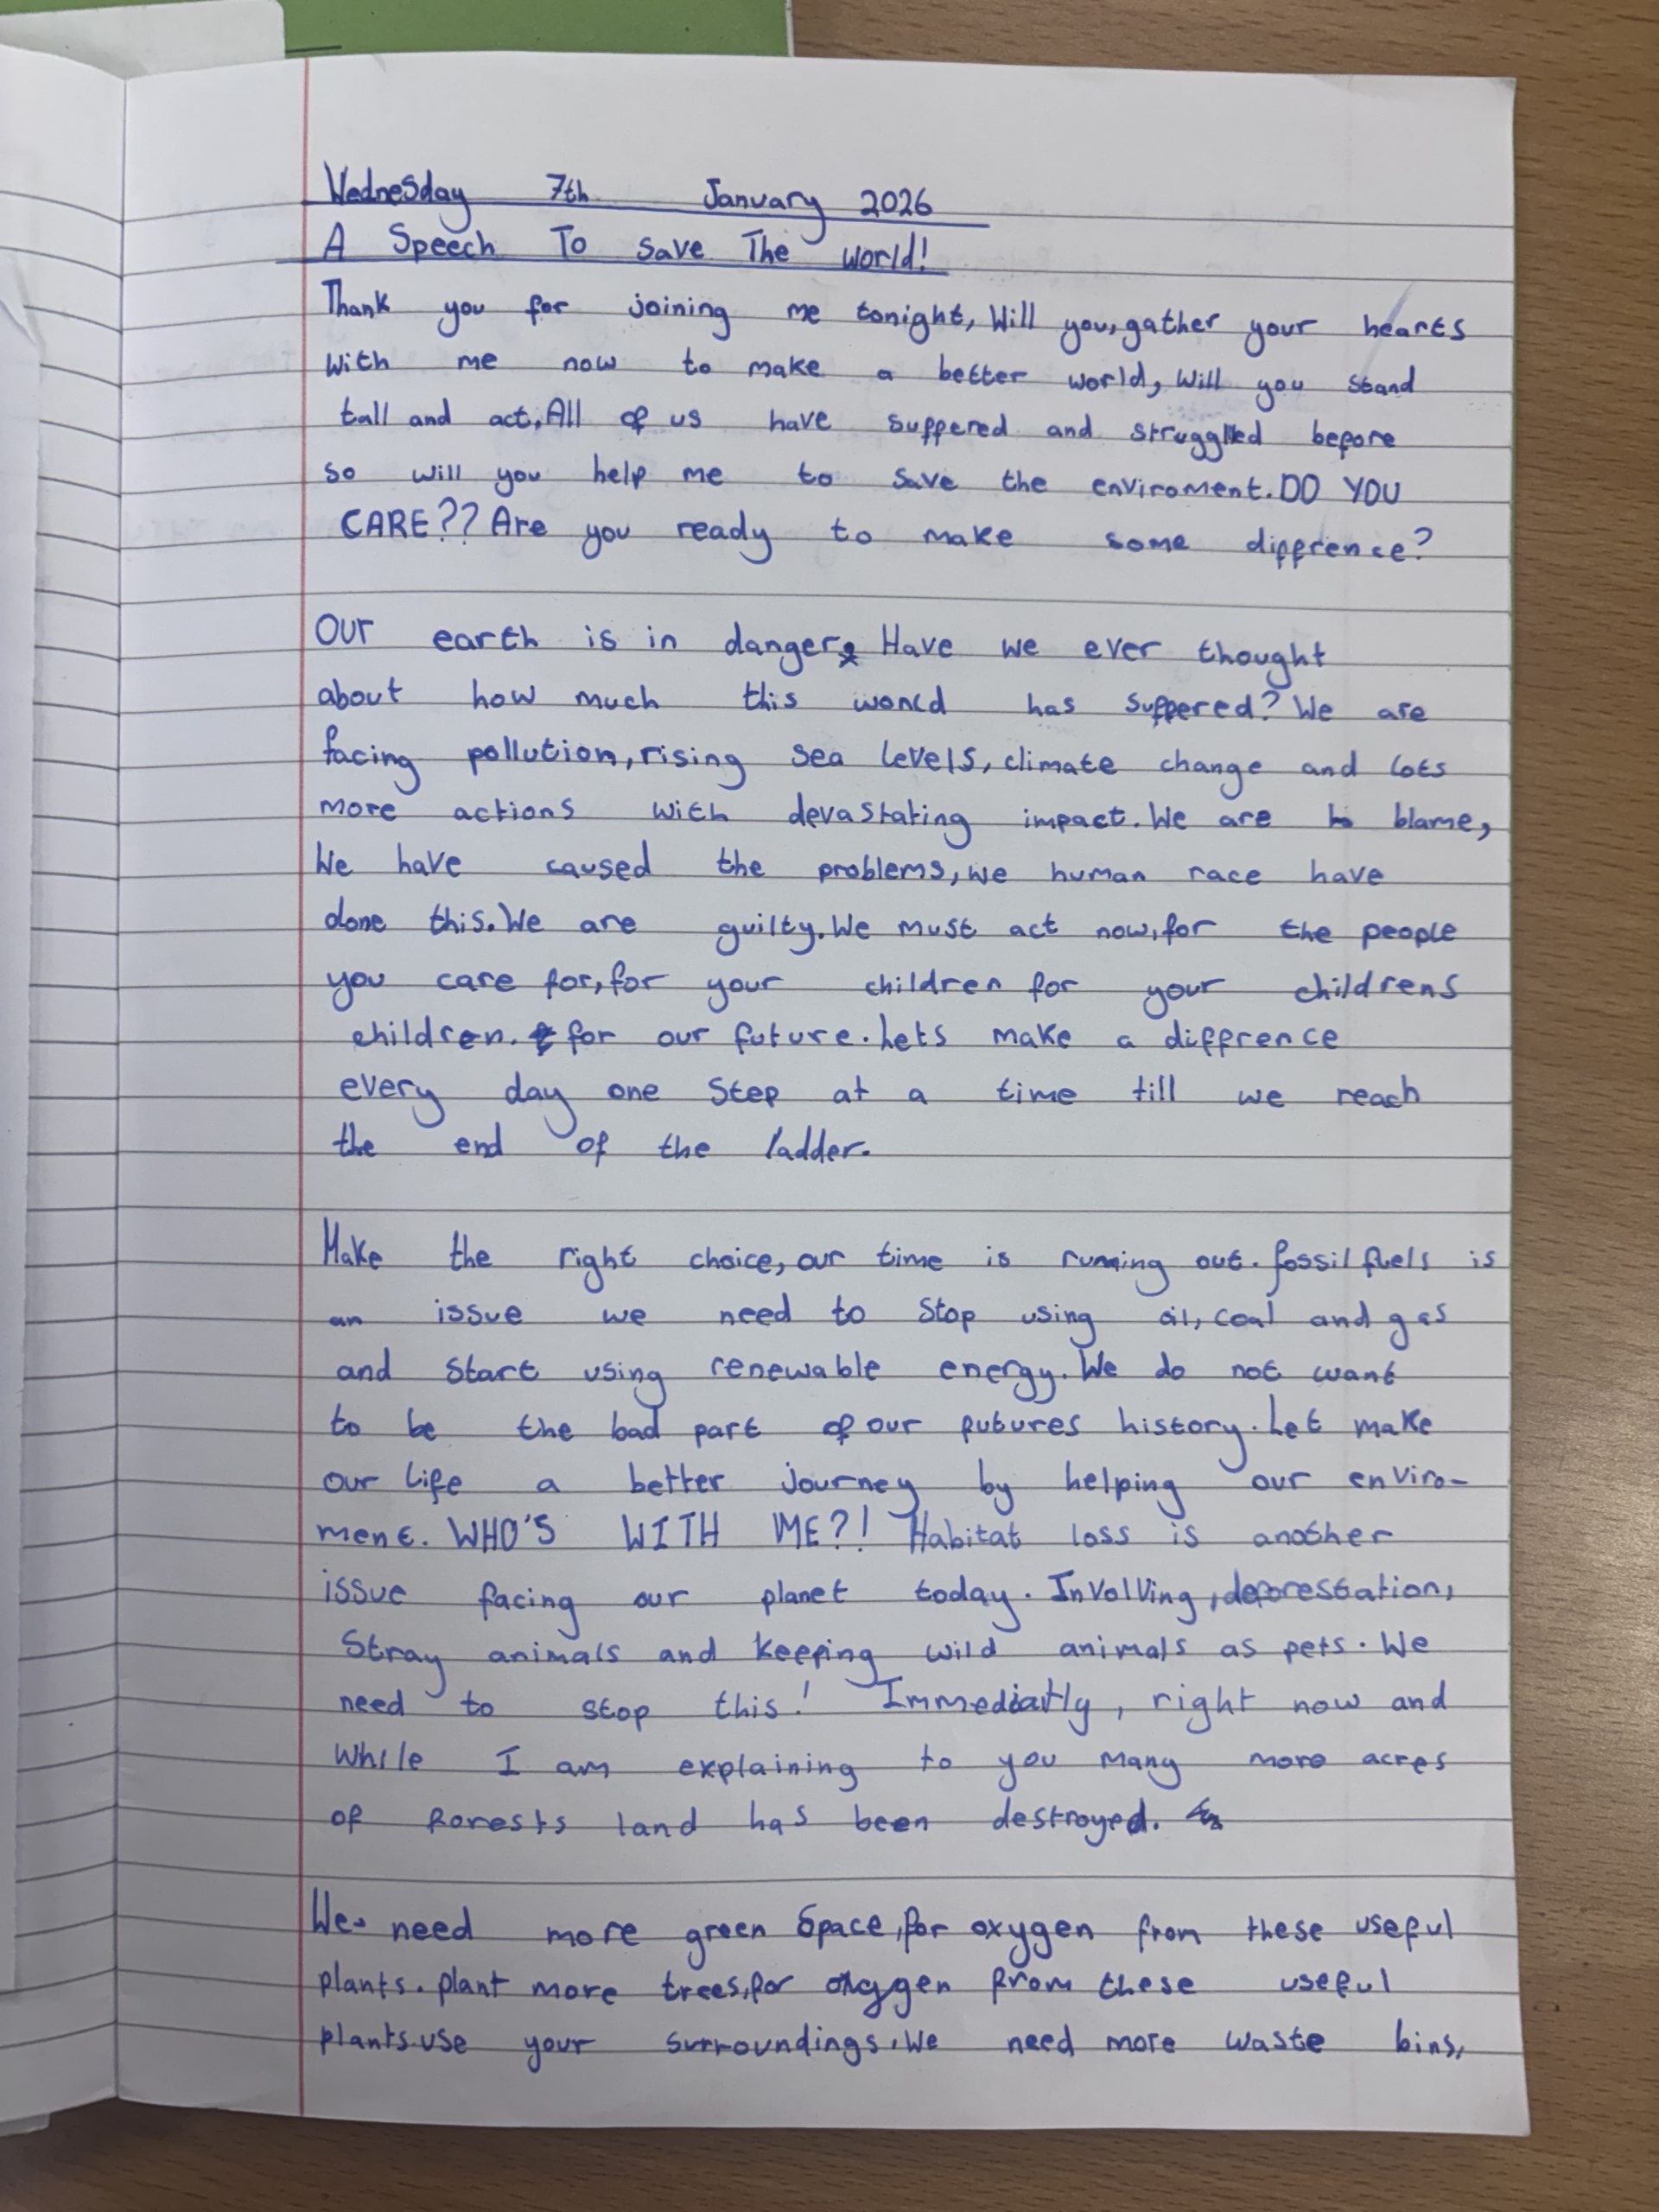 Wednesday 7th January 2026
A Speech To Save The World!
Thank you for joining me tonight, Will you, gather your hearts
With me now to make a better world, Will you stand
tall and act, All of us have suffered and struggled before
so will you help me to save the enviroment. DO YOU
CARE?? Are you ready to make some diffrence?
Our earth is in danger. Have we ever thought
about how much this world has suffered? We are
facing pollution, rising sea levels, climate change and lots
more actions with devastating impact. We are to blame,
We have caused the problems, we human race have
done this. We are guilty. We must act now, for the people
you care for, for your children for your childrens
children. for our future. Lets make a diffrence
every day one step at a time till we reach
the end of the ladder.
Make the right choice, our time is running out. fossil fuels is
an issue we need to stop using oil, coal and gas
and start using renewable energy. We do not want
to be the bad part of our futures history. Let make
our life a better journey by helping our enviro-
ment. WHO'S WITH ME?! Habitat loss is another
issue facing our planet today. Involving, deforestation,
Stray animals and keeping wild animals as pets. We
need to stop this! Immediatly, right now and
While I am explaining to you many more acres
of forests land has been destroyed.
We need more green space, for oxygen from these useful
plants. plant more trees, for oxygen from these useful
plants. use your surroundings. We need more waste bins,